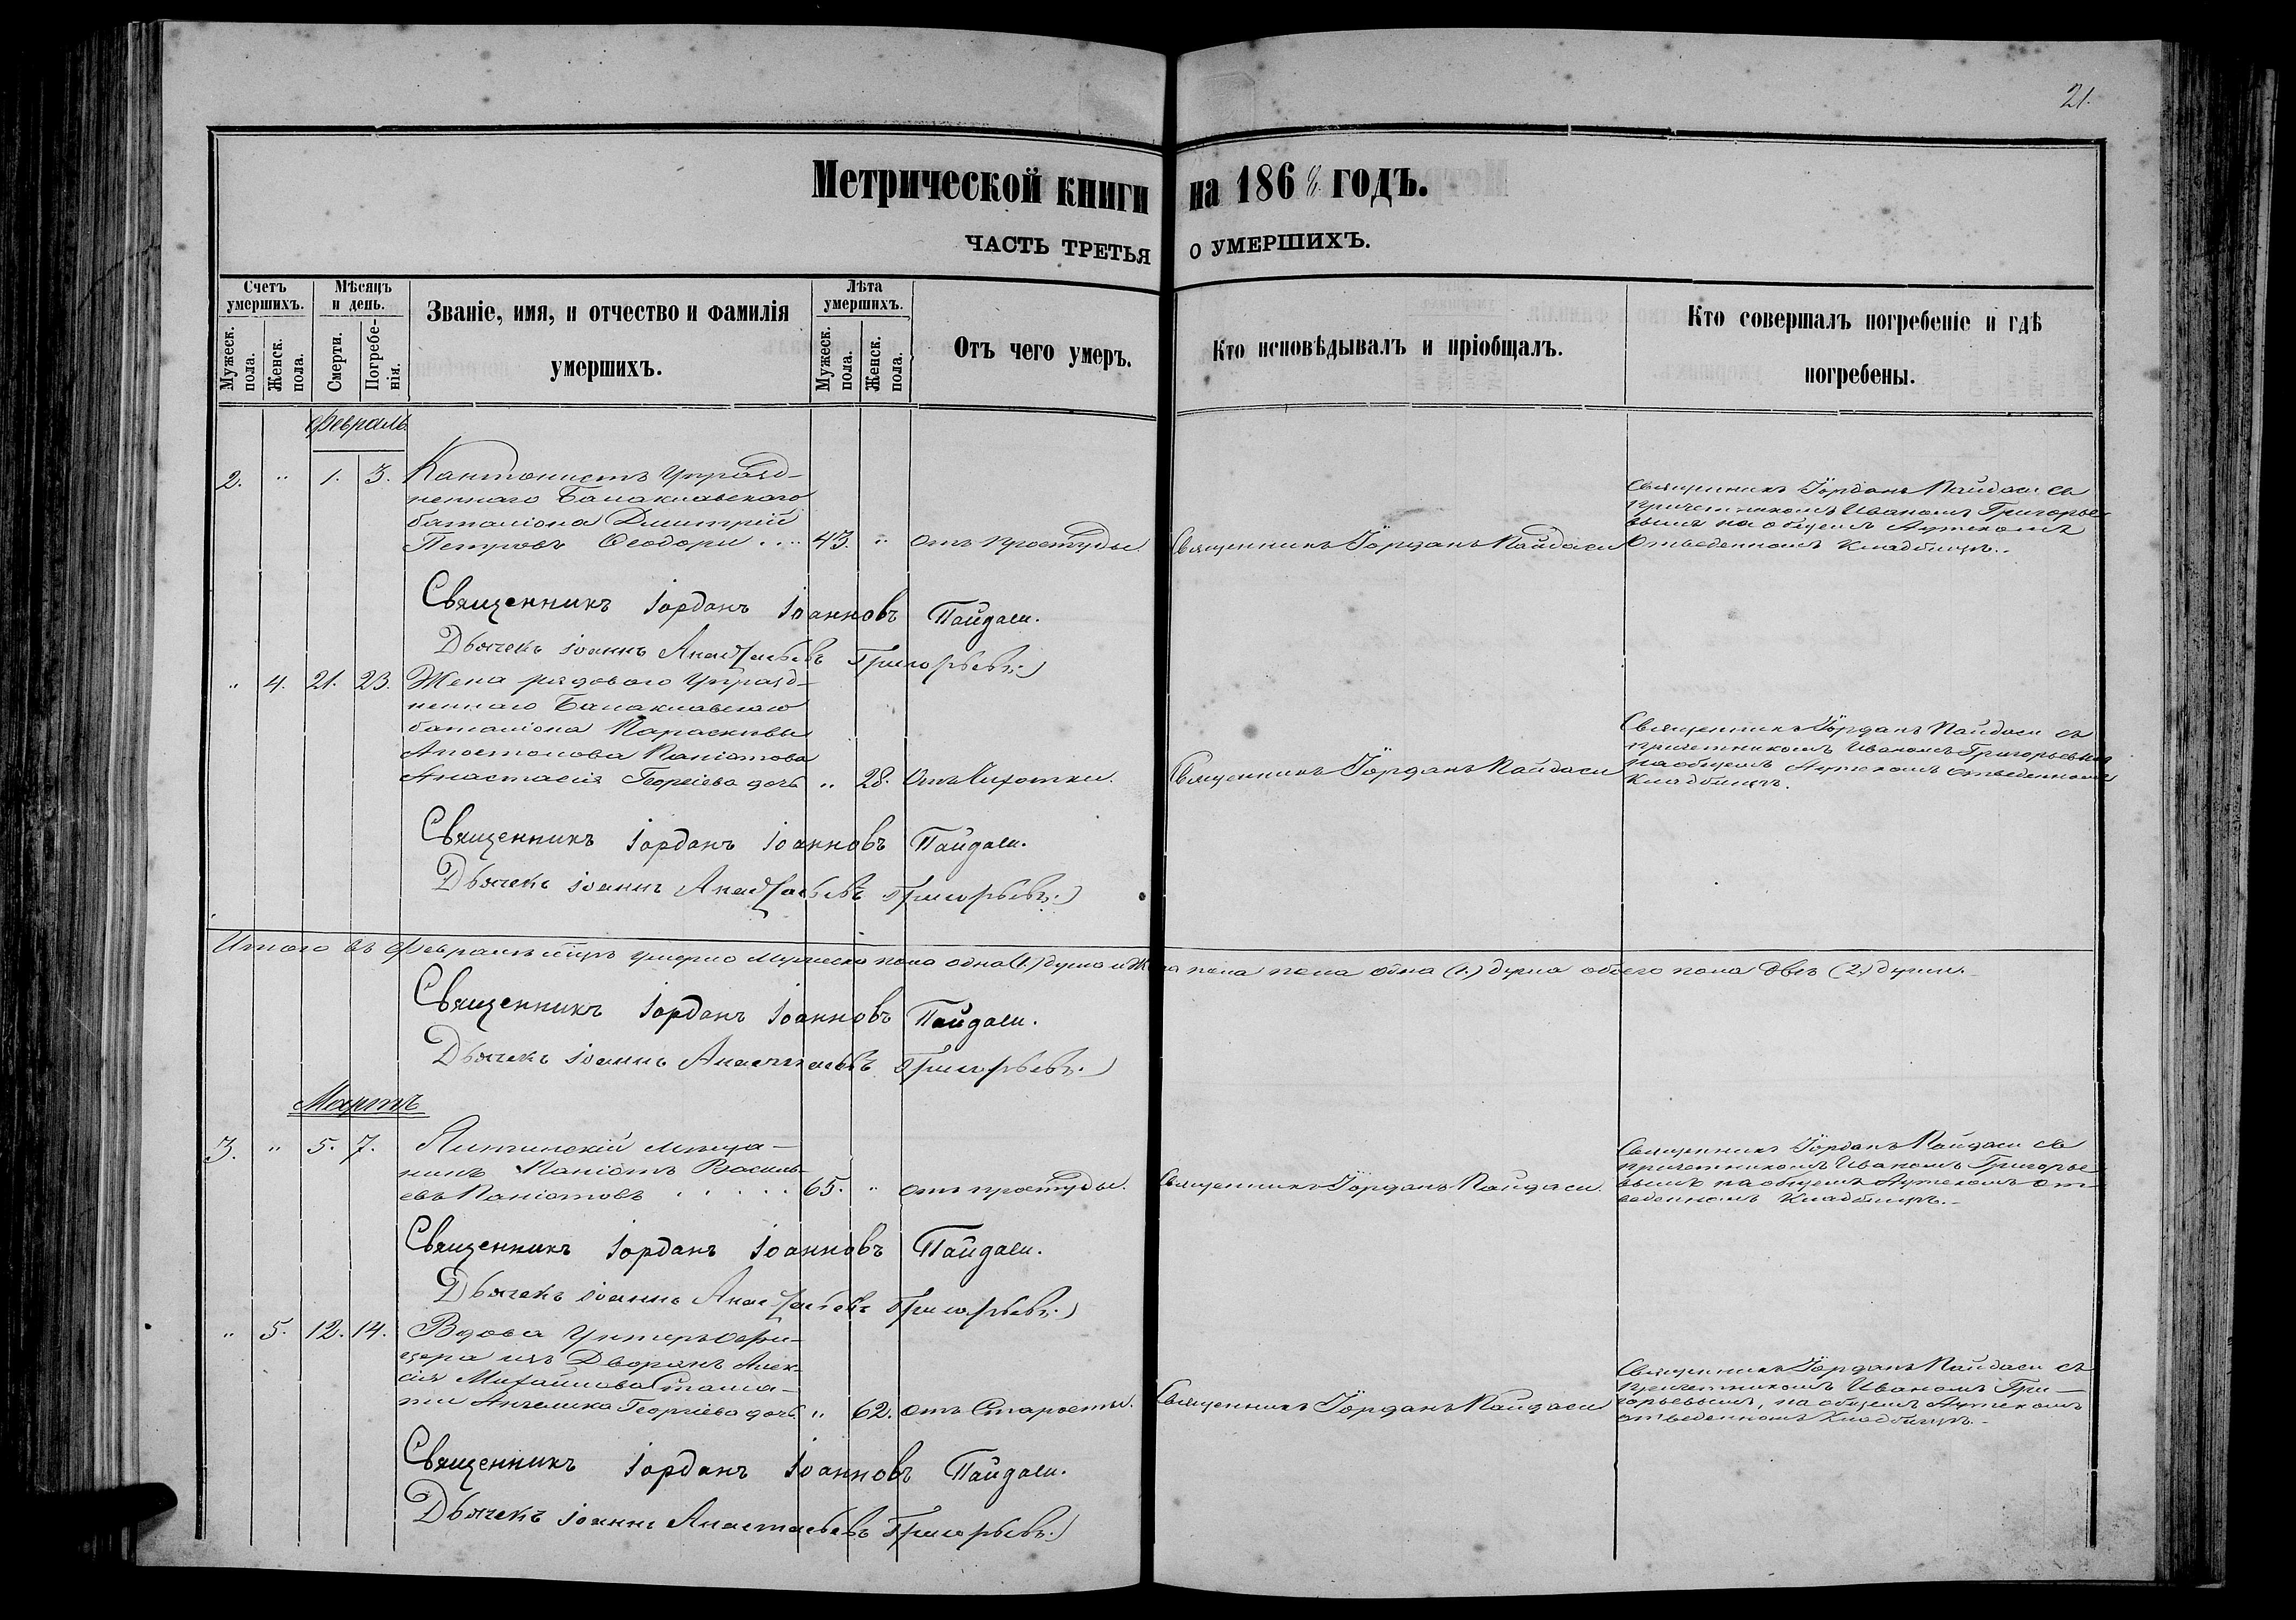 21.
Метрической книги на 1868 годъ.
ЧАСТЬ ТРЕТЬЯ О УМЕРШИХЪ.
Счетъ умершихъ.
Мужеск. пола.
Женск. пола.
Мѣсяцъ и день.
Смерти.
Погребенія.
Званіе, имя, и отчество и фамилія
умершихъ.
Лѣта умершихъ.
Мужеск. пола.
Женск. пола.
Отъ чего умеръ.
Кто исповѣдывалъ и пріобщалъ.
Кто совершалъ погребеніе и гдѣ
погребены.
Февраль
2. " 1. 3. Кантонистъ Упразд-
неннаго Балаклавскаго
баталіона Дмитрій
Петровъ Ѳеодори .... 43. " Отъ простуды.
Священникъ Іорданъ Пайдаси
Священникъ Іорданъ Пайдаси съ
причетникомъ Иваномъ Григорье-
вымъ на общемъ Аутскомъ
Отведенномъ Кладбищѣ.
Священникъ Іорданъ Іоанновъ Пайдаси.
Дьячекъ Іоаннъ Анастасьевъ Григорьевъ.
" 4. 21. 23. Жена рядоваго Упразд-
неннаго Балаклавскаго
баталіона Параскевы
Апостолова Паніотова
Анастасія Георгіева дочь " 28. Отъ Чахотки.
Священникъ Іорданъ Пайдаси
Священникъ Іорданъ Пайдаси съ
причетникомъ Иваномъ Григорьевымъ
на общемъ Аутскомъ отведенномъ
Кладбищѣ.
Священникъ Іорданъ Іоанновъ Пайдаси.
Дьячекъ Іоаннъ Анастасьевъ Григорьевъ.
Итого въ Февралѣ м-цѣ умерло Мужеска пола одна (1.) душа и Женска пола одна (1.) душа обоего пола двѣ (2.) души.
Священникъ Іорданъ Іоанновъ Пайдаси.
Дьячекъ Іоаннъ Анастасьевъ Григорьевъ.
Мартъ
3. " 5. 7. Ялтинскій мѣща-
нинъ Паніотъ Василь-
евъ Паніотовъ ..... 65. " Отъ простуды.
Священникъ Іорданъ Пайдаси.
Священникъ Іорданъ Пайдаси съ
причетникомъ Иваномъ Григорье-
вымъ на общемъ Аутскомъ от-
веденномъ Кладбищѣ.
Священникъ Іорданъ Іоанновъ Пайдаси.
Дьячекъ Іоаннъ Анастасьевъ Григорьевъ.
" 5. 12. 14. Вдова Унтеръ Офи-
цера изъ Дворянъ Алек-
сія Михайлова
Ангелика Георгіева дочь " 62. Отъ Старости.
Священникъ Іорданъ Пайдаси
Священникъ Іорданъ Пайдаси съ
причетникомъ Иваномъ Гри-
горьевымъ, на общемъ Аутскомъ
отведенномъ Кладбищѣ.
Священникъ Іорданъ Іоанновъ Пайдаси.
Дьячекъ Іоаннъ Анастасьевъ Григорьевъ.